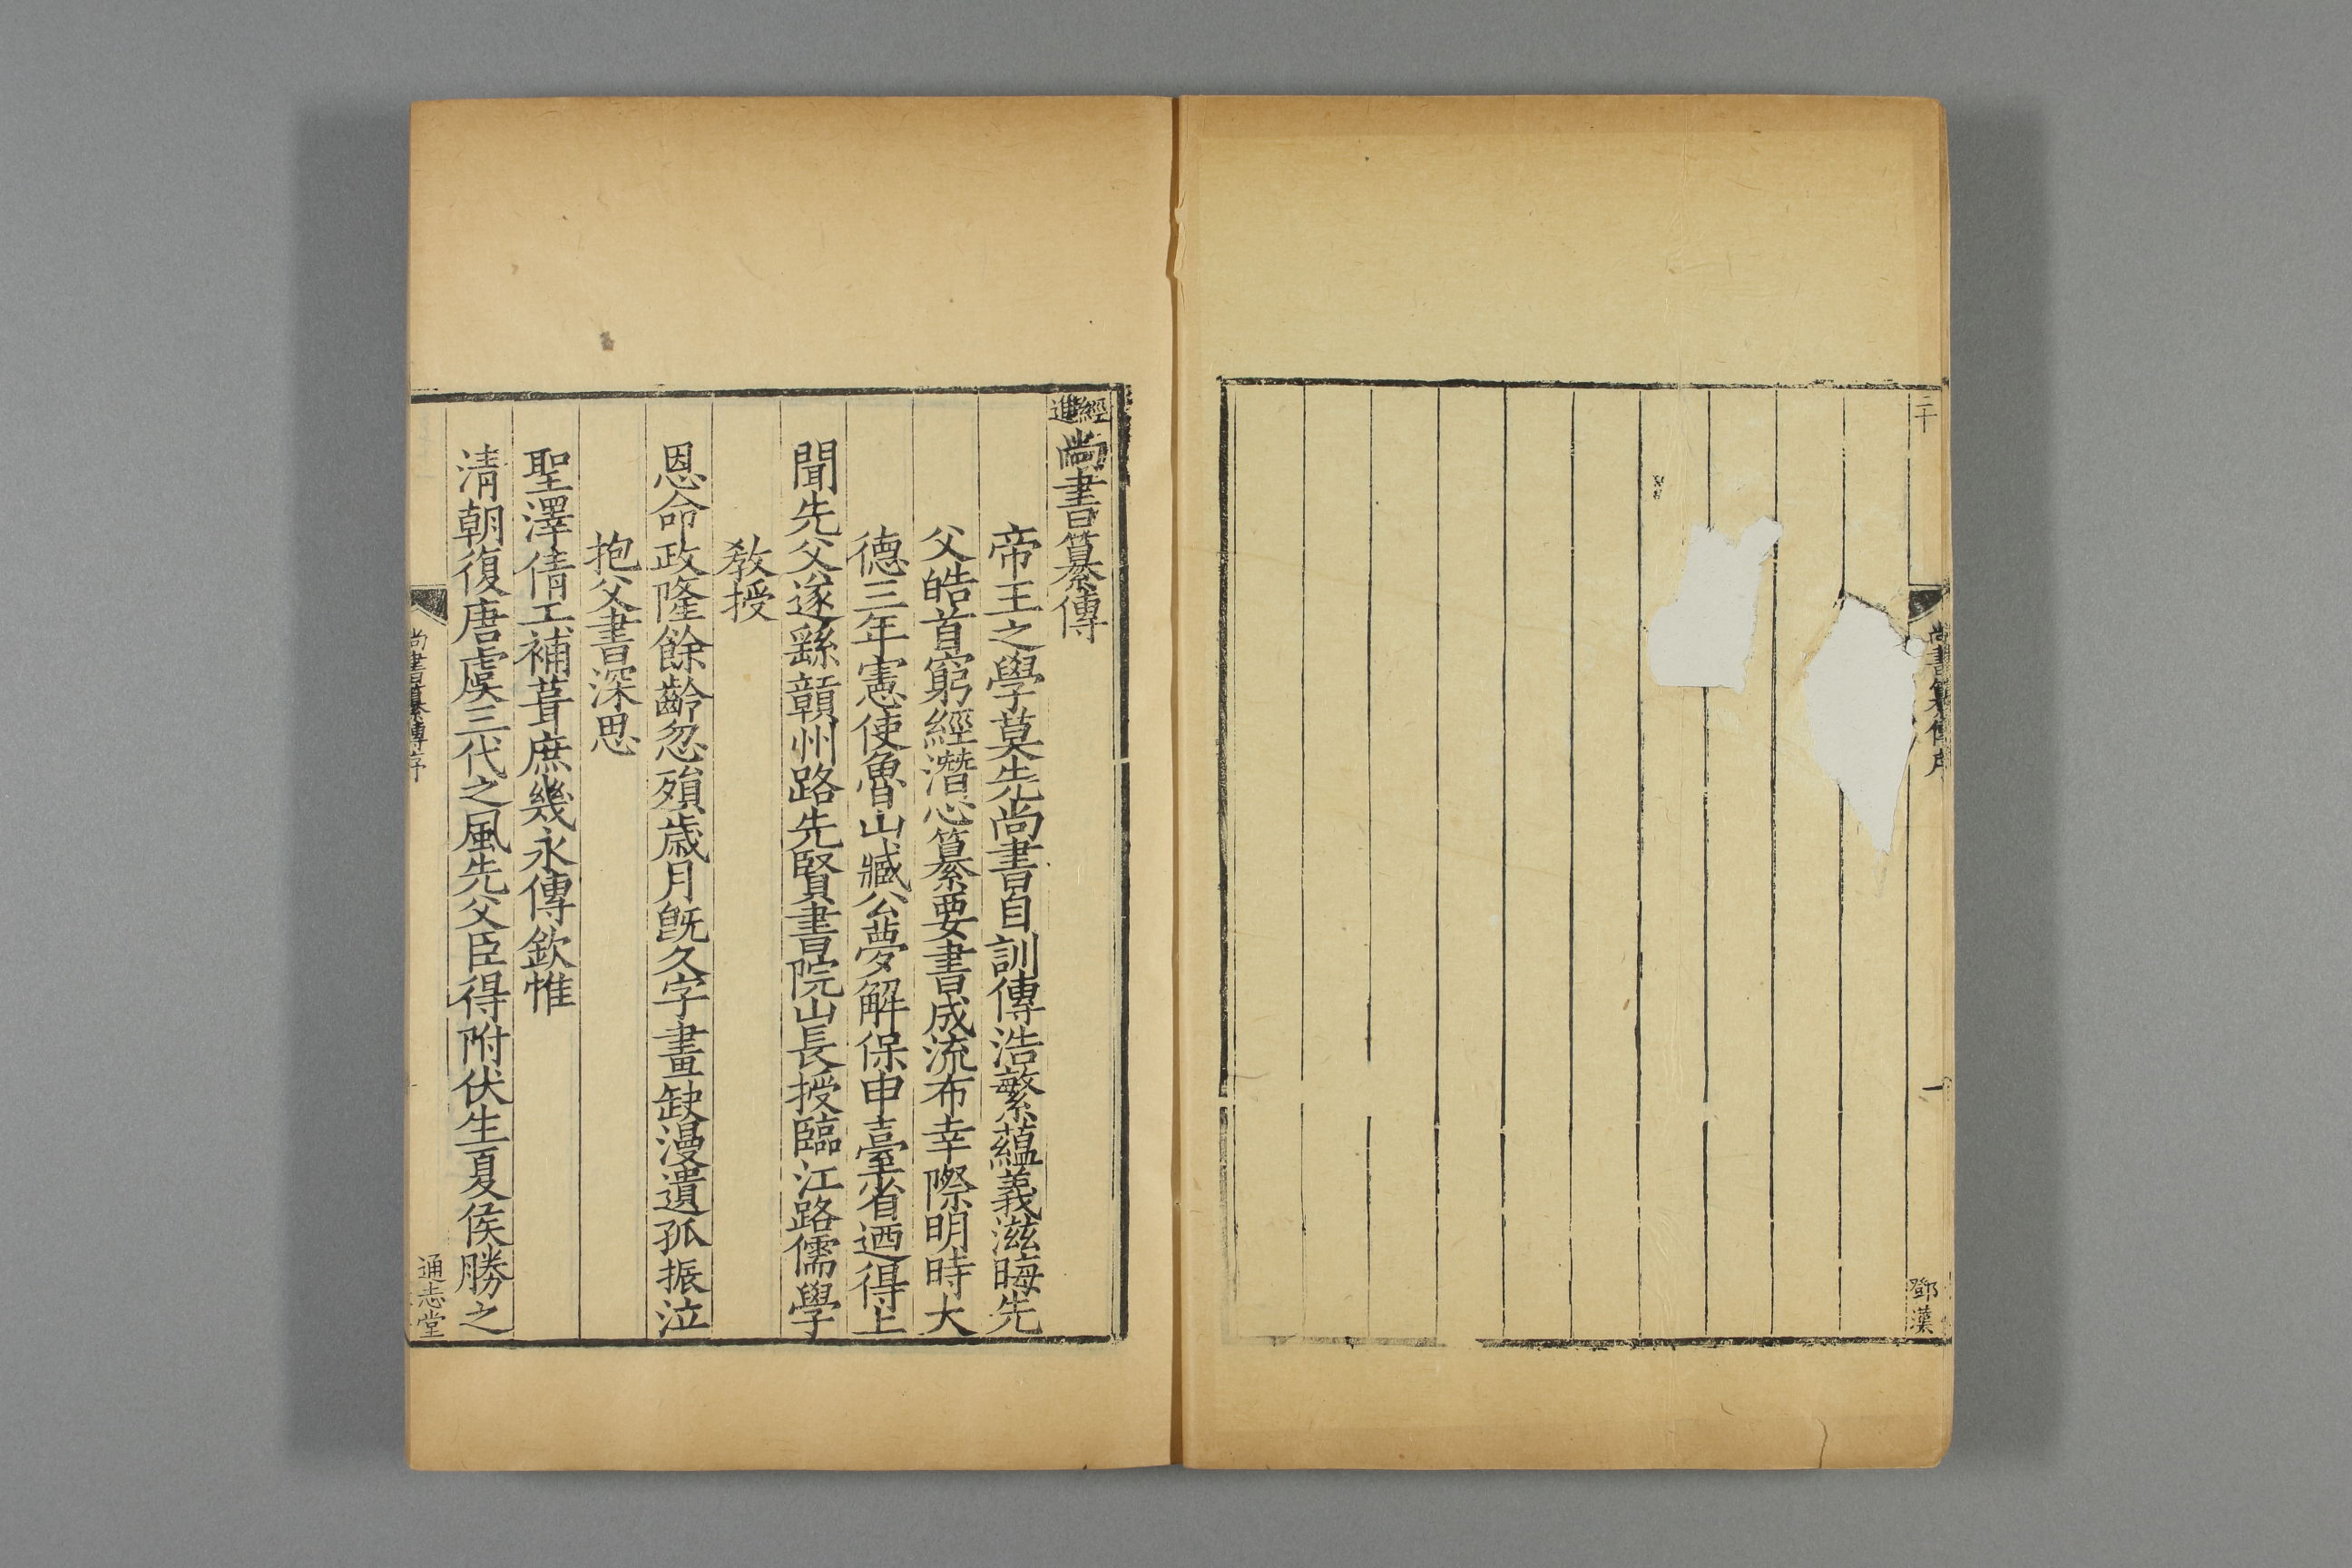 二十
尚書纂傳序
一
鄧漢
經進尚書纂傳
帝王之學莫先尚書自訓傳浩繁蘊義滋晦先
父皓首窮經潛心纂要書成流布幸際明時大
德三年憲使魯山臧公夢解保申臺省迺得上
聞先父遂繇贑州路先賢書院山長授臨江路儒學
教授
恩命政隆餘齡忽殞歲月旣久字畫缺漫遺孤振泣
抱父書深思
聖澤倩工補葺庶幾永傳欽惟
清朝復唐虞三代之風先父臣得附伏生夏侯勝之
尚書纂傳序
通志堂